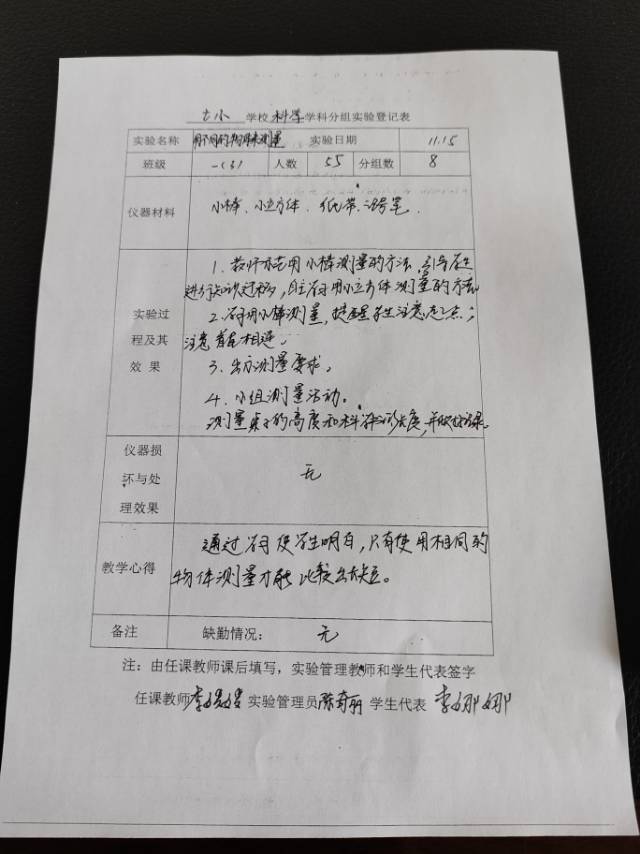 古小 学校 科学 学科分组实验登记表
实验名称 用不同的物体来测量 实验日期 11.15
班级 一(3) 人数 55 分组数 8
仪器材料 小棒、小立方体、纸带、记号笔.
1. 教师示范用小棒测量的方法,引导学生
进行知识迁移,自主学习用小立方体测量的方法
实验过 2. 学习用小棒测量,提醒学生注意起点;
程及其 注意首尾相连。
效果 3. 出示测量要求。
4. 小组测量活动。
测量桌子的高度和科学书的长度,并做好记录。
仪器损
坏与处 无
理效果
通过学习使学生明白,只有使用相同的
教学心得 物体测量才能比较出长短。
备注 缺勤情况: 无
注:由任课教师课后填写,实验管理教师和学生代表签字
任课教师 实验管理员 陈奇丽 学生代表 李娜娜